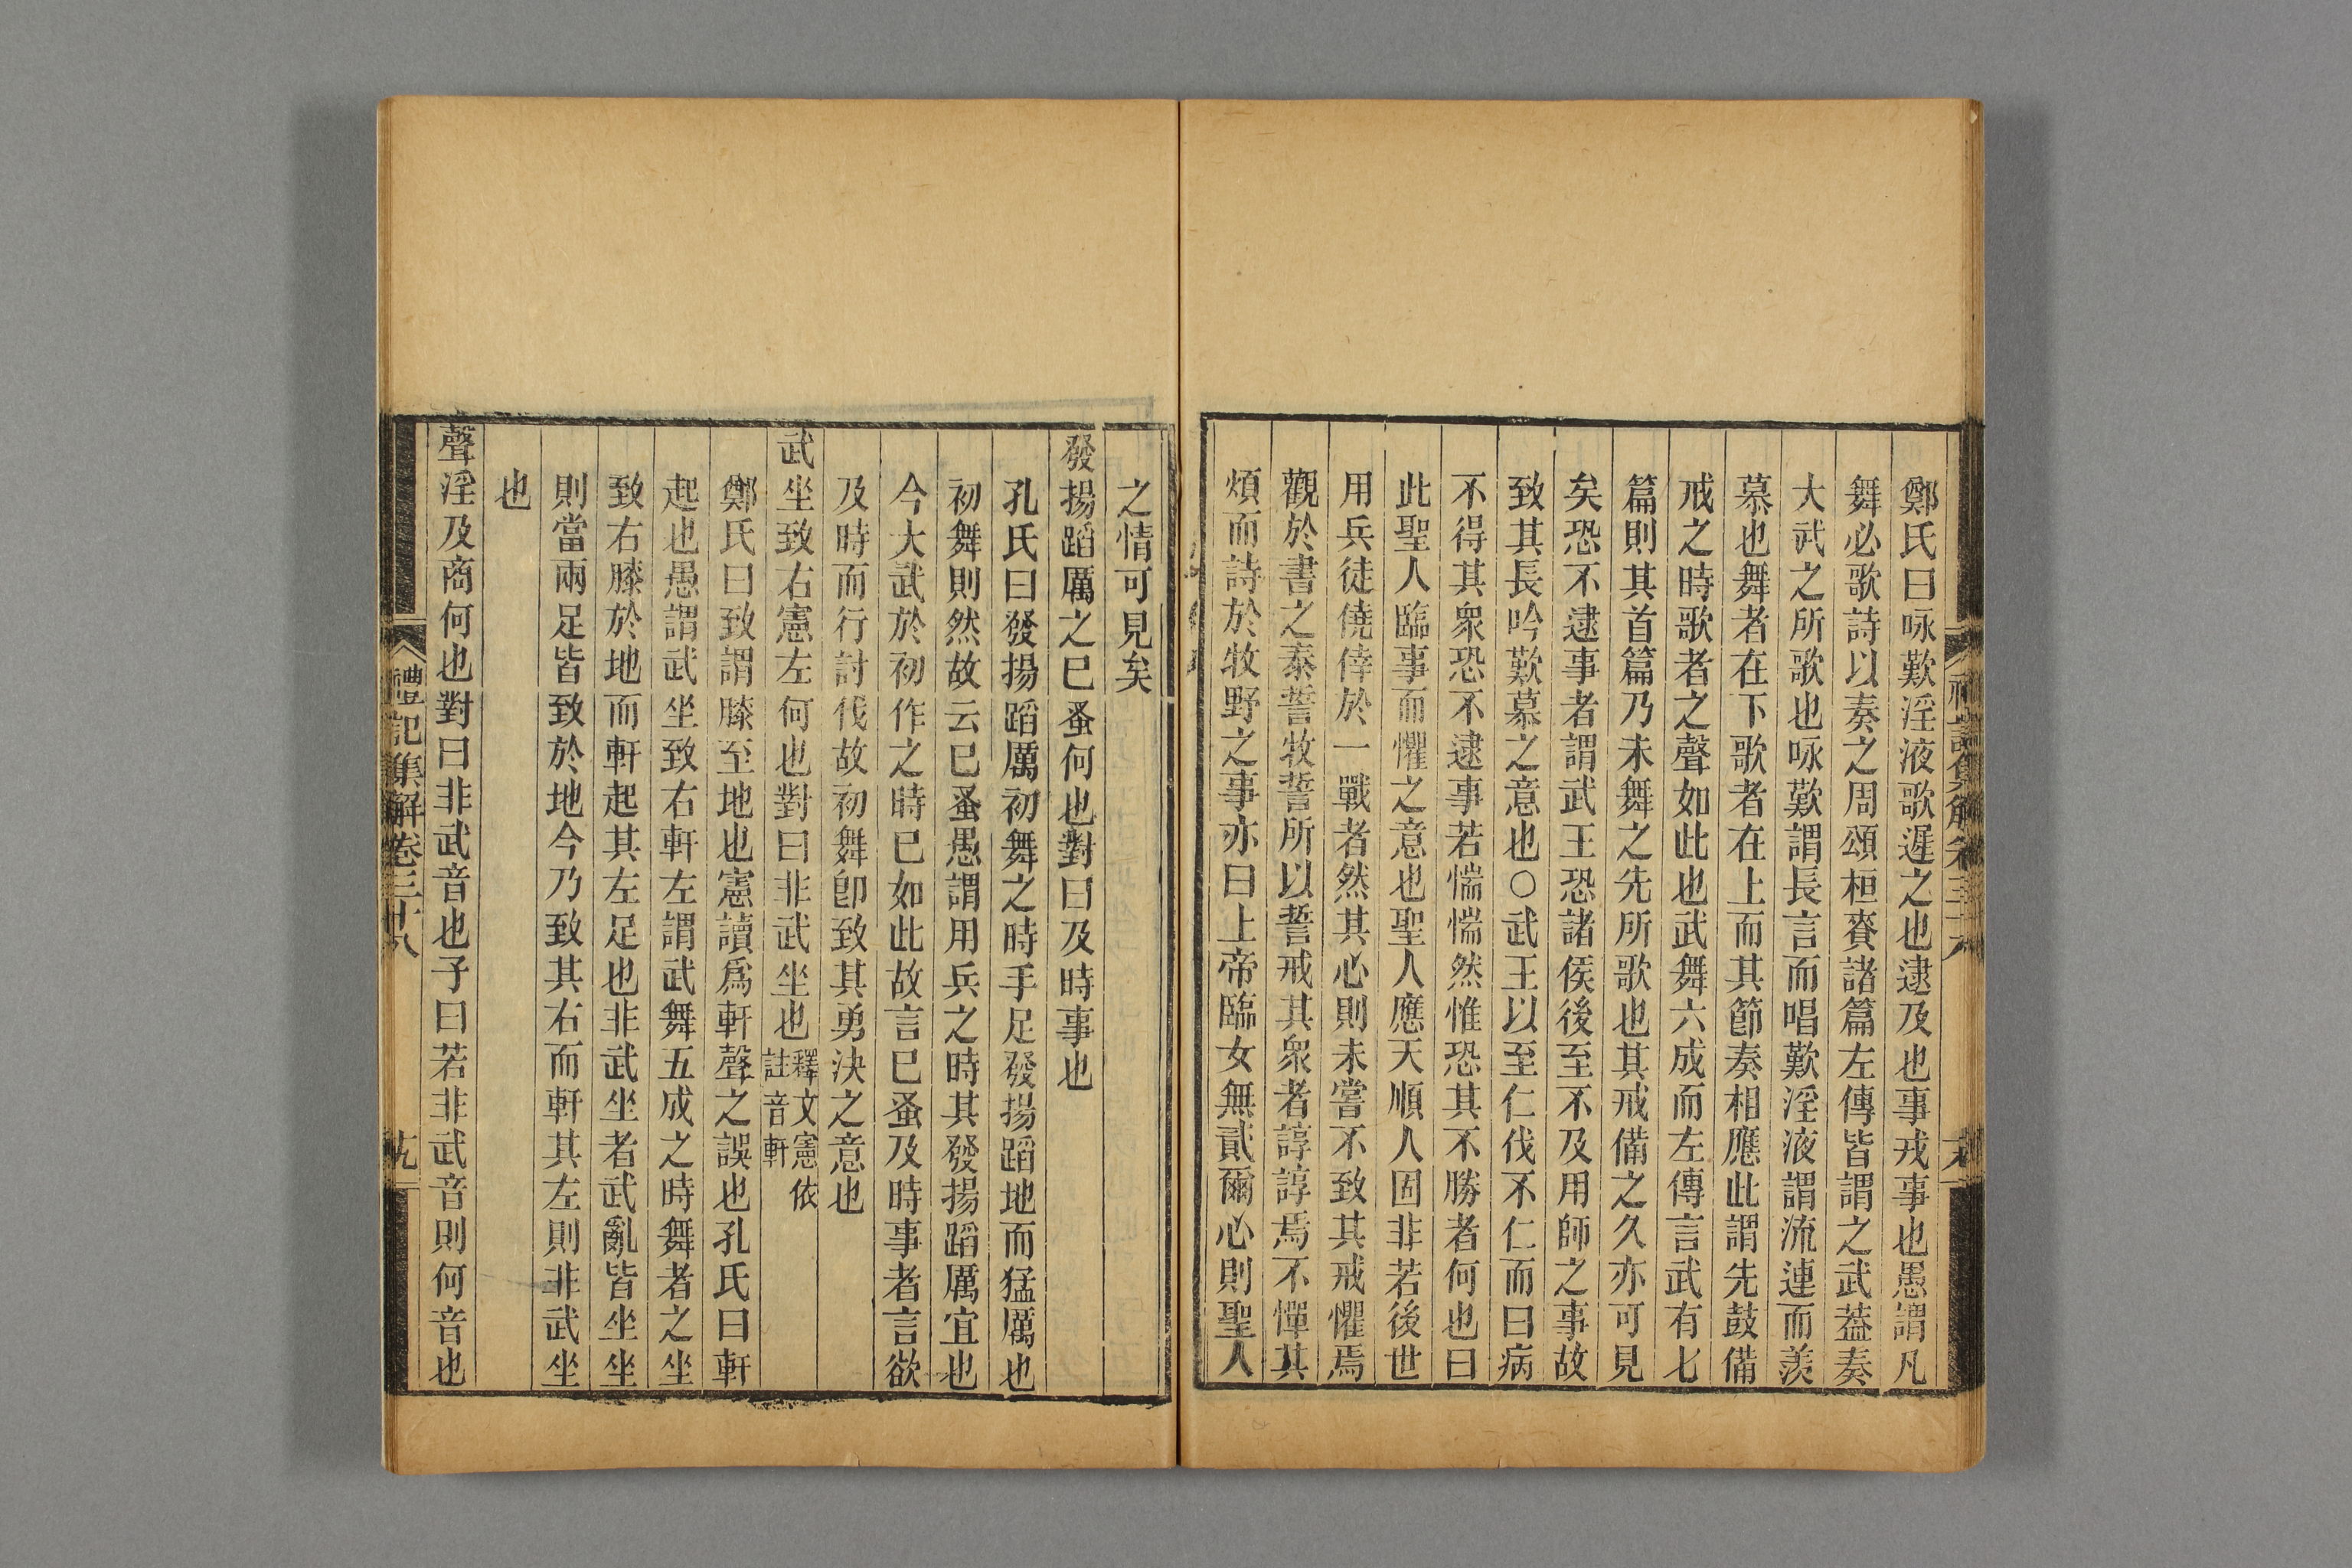 鄭氏曰咏歎淫液歌遲之也逮及也事戎事也愚謂凡
舞必歌詩以奏之周頌桓賚諸篇左傳皆謂之武蓋奏
大武之所歌也咏歎謂長言而唱歎淫液謂流連而羨
慕也舞者在下歌者在上而其節奏相應此謂先鼓備
戒之時歌者之聲如此也武舞六成而左傳言武有七
篇則其首篇乃未舞之先所歌也其戒備之久亦可見
矣恐不逮事者謂武王恐諸侯後至不及用師之事故
致其長吟歎慕之意也○武王以至仁伐不仁而曰病
不得其衆恐不逮事若惴惴然惟恐其不勝者何也曰
此聖人臨事而懼之意也聖人應天順人固非若後世
用兵徒僥倖於一戰者然其心則未嘗不致其戒懼焉
觀於書之泰誓牧誓所以誓戒其衆者諄諄焉不憚其
煩而詩於牧野之事亦曰上帝臨女無貳爾心則聖人
之情可見矣
發揚蹈厲之已蚤何也對曰及時事也
孔氏曰發揚蹈厲初舞之時手足發揚蹈地而猛厲也
初舞則然故云已蚤愚謂用兵之時其發揚蹈厲宜也
今大武於初作之時已如此故言已蚤及時事者言欲
及時而行討伐故初舞卽致其勇決之意也
武坐致右憲左何也對曰非武坐也釋文憲依註音軒
鄭氏曰致謂膝至地也憲讀爲軒聲之誤也孔氏曰軒
起也愚謂武坐致右軒左謂武舞五成之時舞者之坐
致右膝於地而軒起其左足也非武坐者武亂皆坐坐
則當兩足皆致於地今乃致其右而軒其左則非武坐
也
聲淫及商何也對曰非武音也子曰若非武音則何音也
禮記集解卷三十八